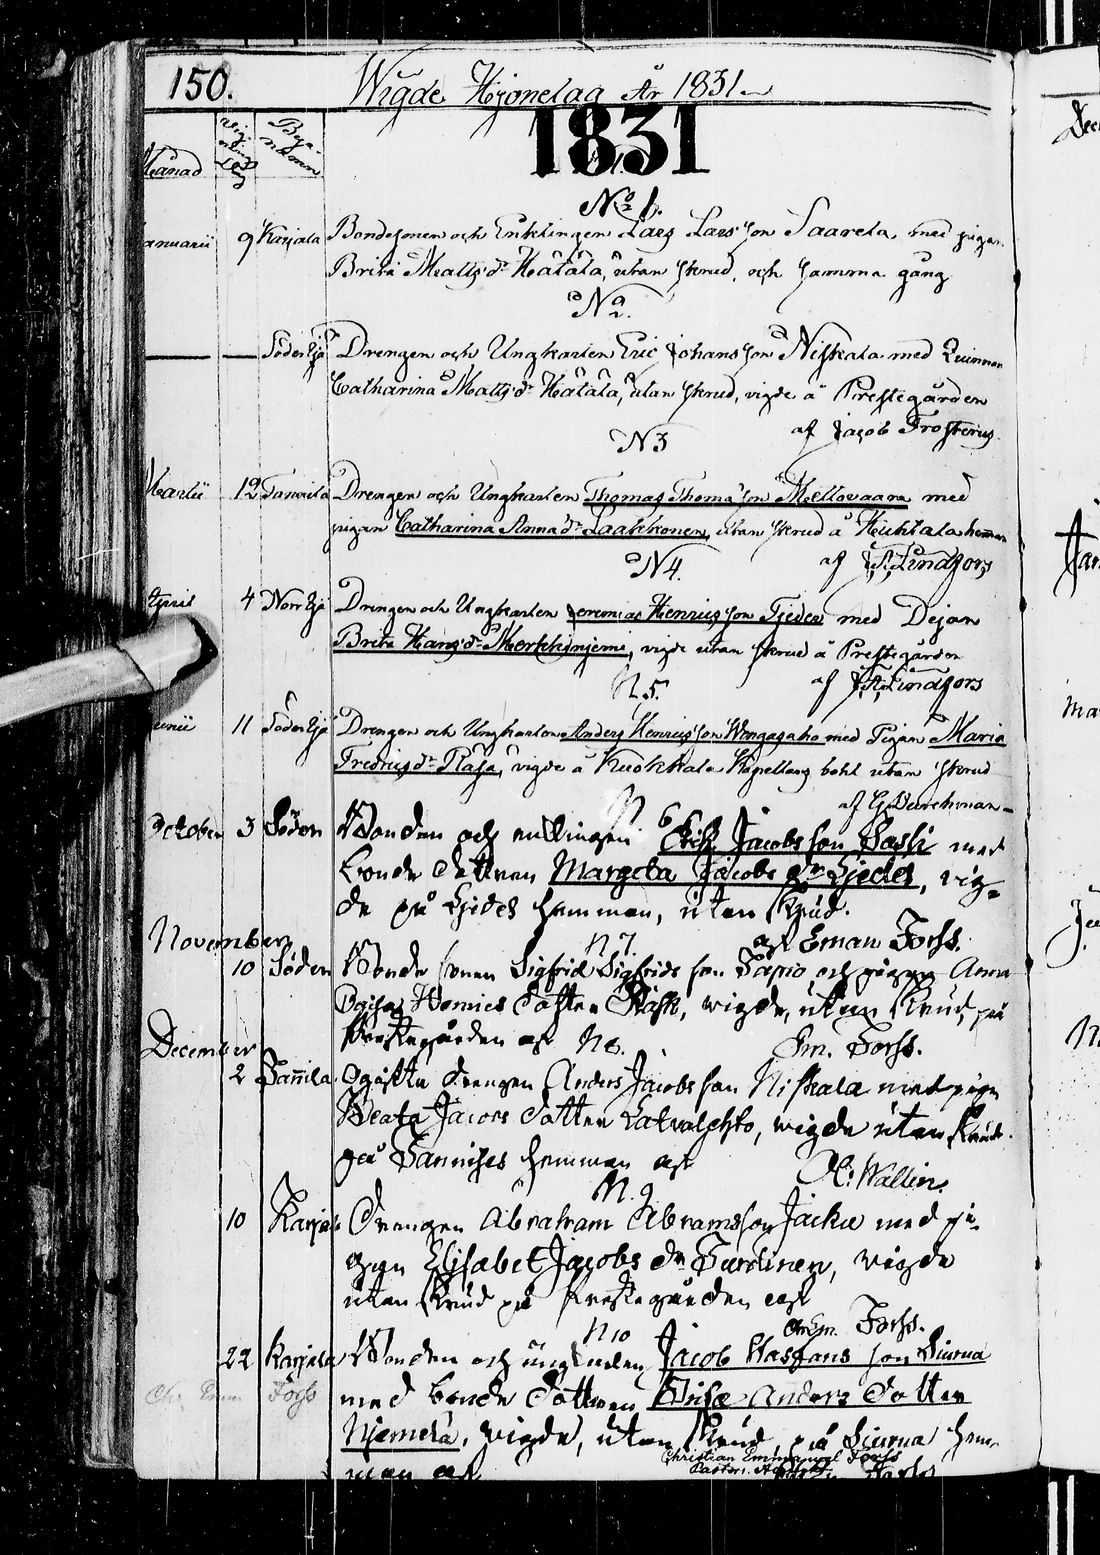 150. Wigde Hjonelag År 1831
1831
Månad Vignings dag Byanamn
No 1.
Januarii 9 Karjala Bondesonen och Enklingen Lars Lars son Saarela med pigan
Brita Matts dr Hätälä, utan skrud, och samma gång
No 2.
Söderbyå Drengen och Ungkarlen Eric Johans son Niskala med Quinnan
Catharina Matts dr Hätälä, utan skrud, vigde å Prestegården
af Jacob Frosterus.
N 3
Martii 12 Tannila Drengen och Ungkarlen Thomas Thoms son Mellovaara med
pigan Catharina Anna dr Laakkonen, utan skrud å Huhtala hemman
N 4. af Lindfors
April 4 Norrbyå Drengen och Ungkarlen Jeremias Henrics son Tjeder med Dejan
Brita Hans dr Merkkinjemi, vigde utan skrud å Prestegården
N. 5. af Lindfors
Junii 11 Söderbyå Drengen och Ungkarlen Anders Henrics son Wengasaho med Pigan Maria
Fredrics dr Räsä, vigde å Kuokkala Kapellans bohl utan skrud
af G. Durchman
N 6
October 3 Söder Bonden och enklingen Erik Jacobs son Paso med
bonde dottren Margeta Jacobs dr Tjeder, vig-
de på Tjeder hemman, utan skrud.
November N 7. af Eman Forss.
10 Söder Bonde sonen Sigfrid Sigfrids son Tapio och pigan Anna
Caisa Henrics dotter Räsk, wigde, utan skrud, på
Prestegården af N 8. Em. Forss.
December
2 Tannila ogifta drengen Anders Jacobs son Niskala med pigan
Beata Jacobs dotter Latvalehto, wigde utan skrud
på Tannilas hemman af Ol: Wallin.
N. 9
10 Karjala Drengen Abraham Abramsson Jacku med pi-
gan Elisabet Jacobs dr Turtinen, vigde
utan skrud på Prestegården af
N 10 Chr Em. Forss.
22 Karjala Bonden och ungkarlen Jacob Staffans son Siurua
Chr Em Forss med bonde dottren Brita Anders Dotter
Njemelä, vigde, utan skrud, på Siurua hem-
man af Christian Emmanuel Forss
Pastors Adjunkt